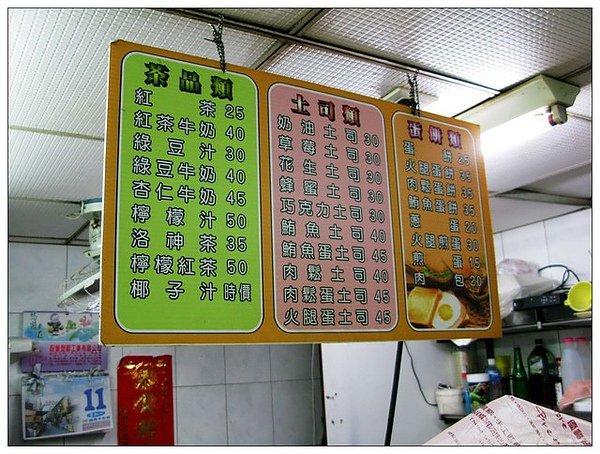 茶品類
紅茶 25
紅茶牛奶 40
綠豆汁 30
綠豆牛奶 40
杏仁牛奶 45
檸檬汁 50
洛神茶 35
檸檬紅茶 50
椰子汁 時價
土司類
奶油土司 30
草莓土司 30
花生土司 30
蜂蜜土司 30
巧克力土司 30
鮪魚土司 40
鮪魚蛋土司 45
肉鬆土司 40
肉鬆蛋土司 45
火腿蛋土司 45
蛋餅類
蛋餅 25
火腿蛋餅 35
肉鬆蛋餅 35
鮪魚蛋餅 35
蔥蛋 20
火腿煎蛋 30
煎蛋 15
肉包 20
11